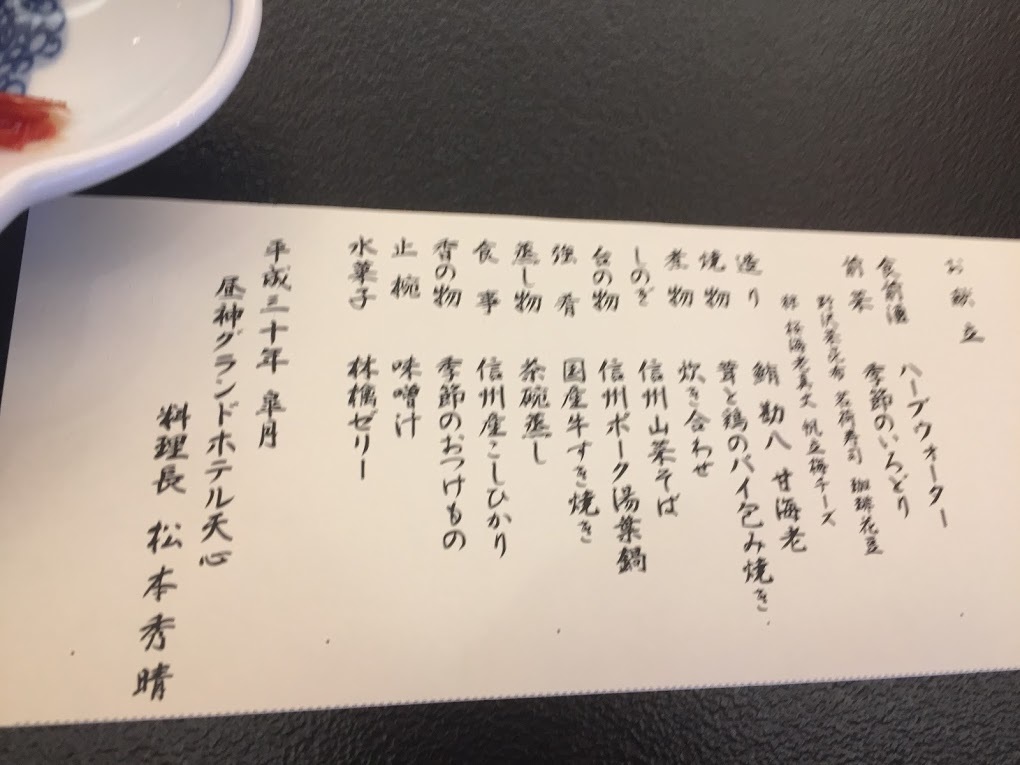 お献立
食前酒 ハーブウォーター
前菜 季節のいろどり
野沢菜昆布 茗荷寿司 珈琲花豆
桜海老真丈 帆立梅チーズ
造り 鮪 勘八 甘海老
焼物 茸と鶏のパイ包み焼き
煮物 炊き合わせ
しのぎ 信州山菜そば
台の物 信州ポーク湯葉鍋
強肴 国産牛すき焼き
蒸し物 茶碗蒸し
食事 信州産こしひかり
香の物 季節のおつけもの
止椀 味噌汁
水菓子 林檎ゼリー
平成三十年 皐月
昼神グランドホテル天心
料理長 松本秀晴